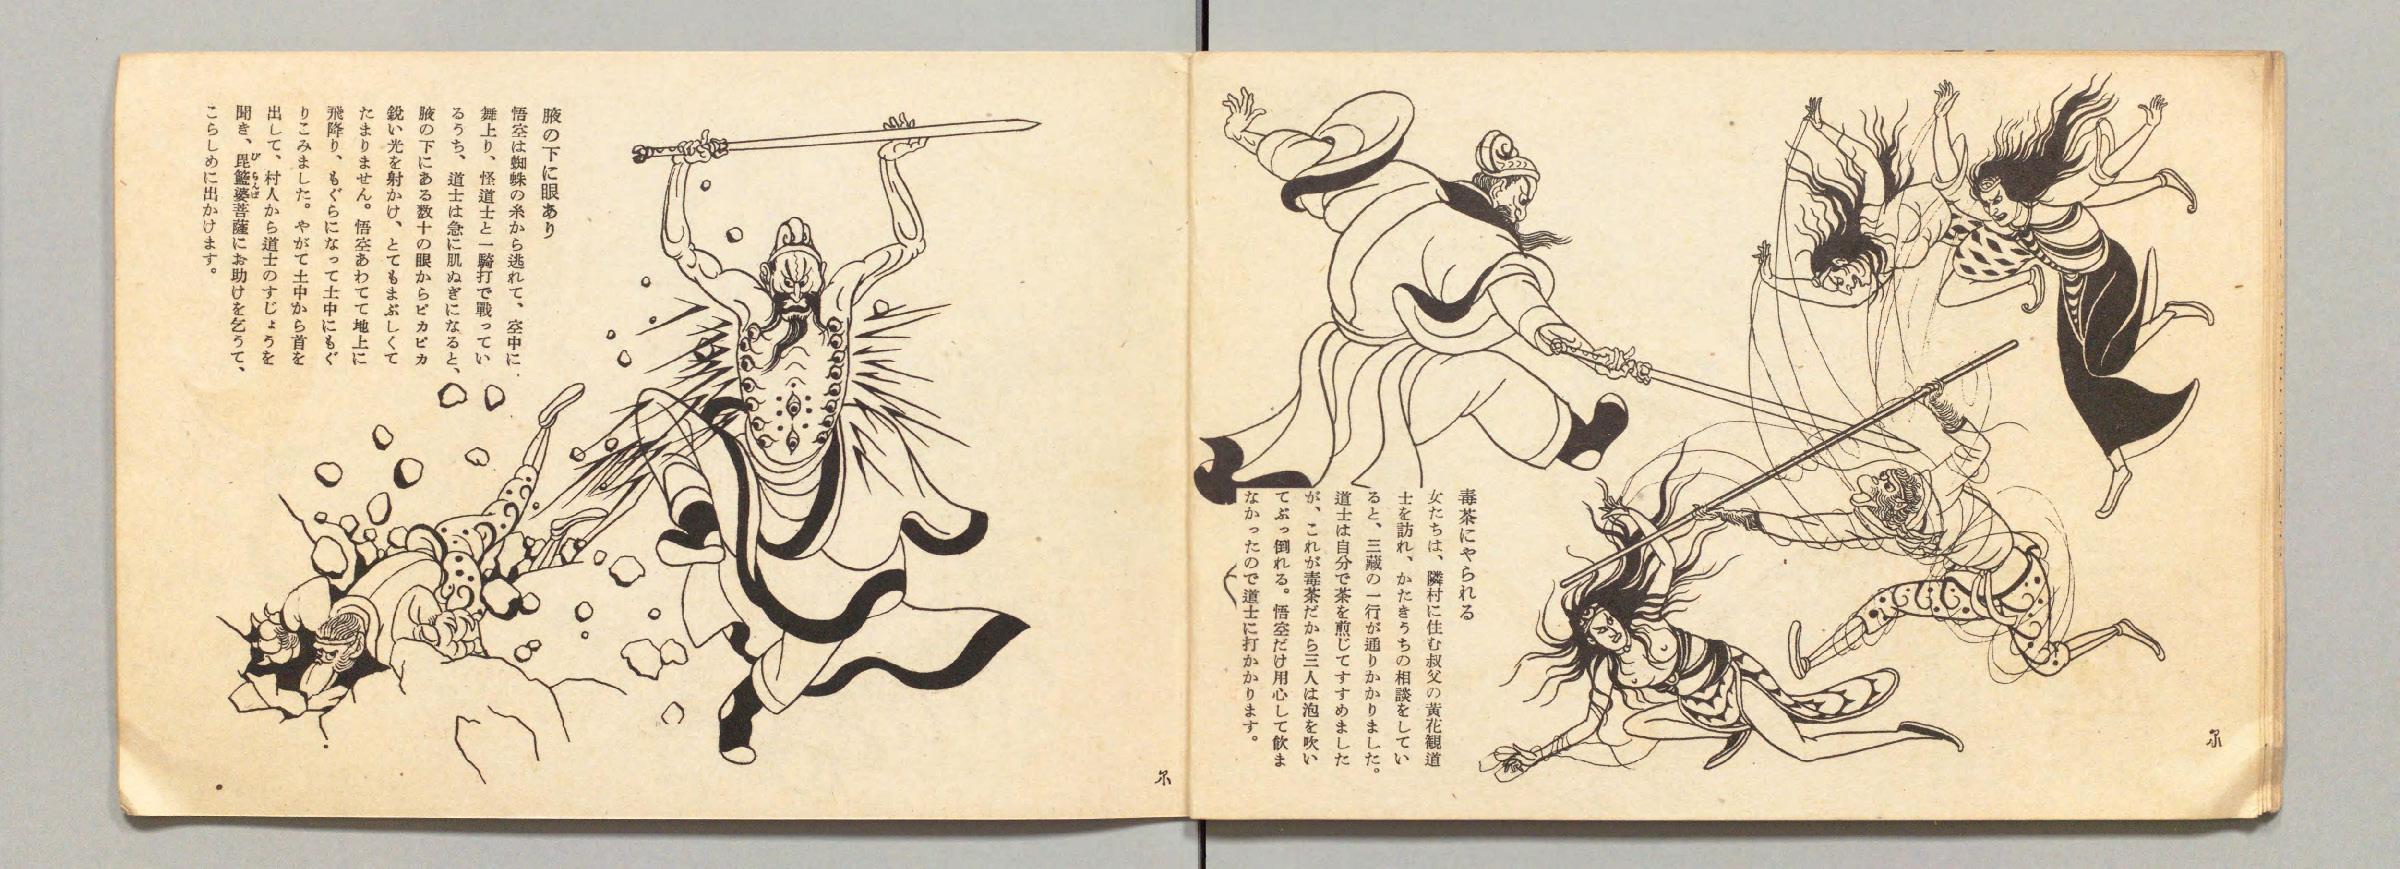 毒茶にやられる
女たちは、隣村に住む叔父の黄花観道
士を訪れ、かたきうちの相談をしてい
ると、三蔵の一行が通りかかりました。
道士は自分で茶を煎じてすすめました
が、これが毒茶だから三人は泡を吹い
てぶっ倒れる。悟空だけ用心して飲ま
なかったので道士に打かかります。
腋の下に眼あり
悟空は蜘蛛の糸から逃れて、空中に
舞上り、怪道士と一騎打で戰ってい
るうち、道士は急に肌ぬぎになると、
腋の下にある数十の眼からピカピカ
鋭い光を射かけ、とてもまぶしくて
たまりません。悟空あわてて地上に
飛降り、もぐらになって土中にもぐ
りこみました。やがて土中から首を
出して、村人から道士のすじょうを
聞き、毘籃婆菩薩にお助けを乞うて、
びらんば
こらしめに出かけます。